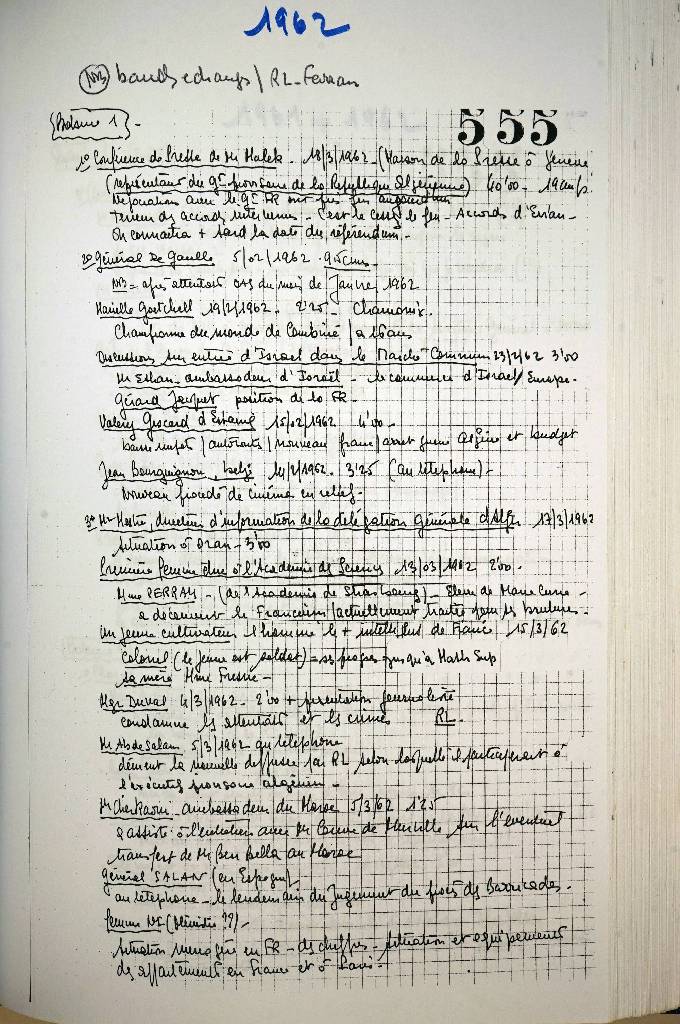 1962
NB bande echange / RL - Ferran
Bobine 1 -
555
1° Conférence de Presse de Mr Malek - 18/3/1962 - (Maison de la Presse à Genève
(représentant du gt provisoire de la République Algérienne) 40'00 - 19 cm/s
Négociations avec le gt FR ont pris fin aujourd'hui
Termes des accords intervenus - C'est le cessez le feu - Accords d'Evian -
On connaitra + tard la date du référendum -
2° Général De Gaulle 5/02/1962 9,5 cm/s -
NB = après attentats OAS du mois de Janvier 1962
Marielle Goitchell 19/2/1962 - 2'25 - Chamonix.
Championne du monde de Combiné / à 16 ans
Discussions sur entrée d'Israël dans le Marché Commun 23/2/62 3'00
Mr Ethan - ambassadeur d'Israël - le commerce d'Israël / Europe -
Gérard Jacquet position de la FR -
Valéry Giscard d'Estaing 15/02/1962 4'00 -
baisse impôts / autoroutes / nouveau franc / arrêt guerre Algérie et budget
Jean Bourguignon, belge 14/2/1962 - 3'25 (au téléphone) -
Nouveau procédé de cinéma en relief -
3° Mr Mestre, directeur d'information de la délégation générale d'Alger 17/3/1962
Situation à Oran - 3'00
Première femme élue à l'Académie des Sciences 13/03/1962 2'00 -
Mme PERRAY - (de l'Académie de Strasbourg) - Elève de Marie Curie -
a découvert le Francium / actuellement traitée pour ses brulures -
Un jeune cultivateur l'homme le + intelligent de France 15/3/62
Colonel (le jeune est soldat) = ses progrès jusqu'à Math Sup
Sa mère Mme Fresne -
Mgr Duval 4/3/1962 - 2'00 + présentation journaliste
condamne les attentats et les crimes RL -
Mr Abdesalam 5/3/1962 au téléphone
dément la nouvelle diffusée par RL selon laquelle il participerait à
l'exécutif provisoire algérien -
Mr Cherkaoui - ambassadeur du Maroc 5/3/62 1'25
a assisté à l'entretien avec Mr Couve de Murville sur l'éventuel
transfert de Mr Ben Bella au Maroc
Général SALAN (en Espagne)
au téléphone - le lendemain du jugement du procès des Barricades -
femme NI (Ministre ??) -
Situation ménagère en FR - des chiffres - Situation et équipements
des appartements en France et à Paris -